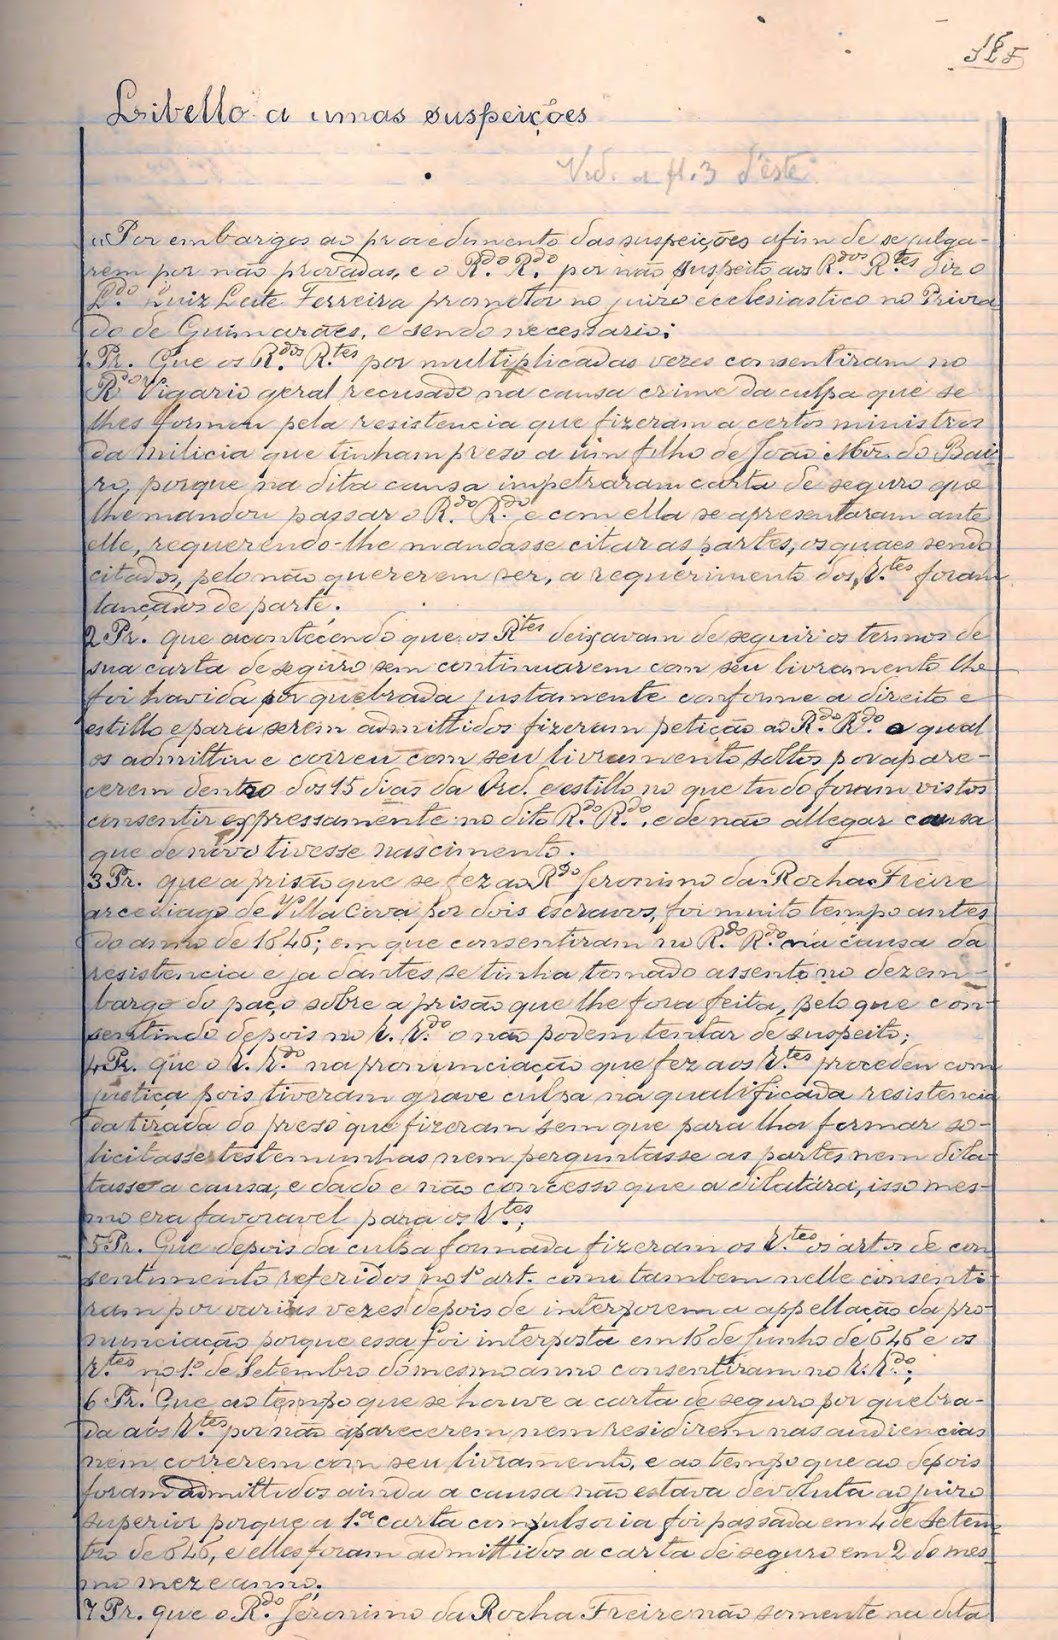 Libello a umas suspeições
Vid. a fl. 3 d'este
"Por embargos ao procedimento das suspeições afim de se julga-
rem por não provadas, e o R.do R.do por não suspeito aos R.dos R.tes diz o
L.do Luiz Leite Ferreira promotor no juizo ecclesiastico no Priora
do de Guimarães, e sendo necessario:
1 Pr. Que os R.dos R.tes por multiplicadas vezes consentiram no
R.do Vigario geral recusado na causa crime da culpa que se
lhes formou pela resistencia que fizeram a certos ministros
da milicia que tinham preso a um filho de João Mor. do Bai
ro, porque na dita causa impetraram carta de seguro que
lhe mandou passar o R.do R.do, e com ella se apresentaram ante
elle, requerendo-lhe mandasse citar as partes, os quaes sendo
citados, pelo não quererem ser, a requerimento dos R.tes foram
lançados de parte.
2 Pr. que acontecendo que os R.tes deixavam de seguir os termos de
sua carta de seguro sem continuarem com seu livramento lhe
foi havida por quebrada justamente conforme a direito e
estillo e para serem admittidos fizeram petição ao R.do R.do o qual
os admittiu e correu com seu livramento soltos por apare-
cerem dentro dos 15 dias da Ord. e estillo no que tudo foram vistos
consentir expressamente no dito R.do R.do, e de não allegar causa
que de novo tivesse nascimento.
3 Pr. que a prisão que se fez ao R.do Jeronimo da Rocha Freire
arcediago de Villa Cova por dois escravos, foi muito tempo antes
do anno de 1646; em que consentiram no R.do R.do na causa da
resistencia e ja dantes se tinha tomado assento no dezem-
bargo do paço sobre a prisão que lhe fora feita, pelo que con-
sentindo depois no R. R.do o não podem tentar de suspeito;
4 Pr. que o R. R.do na pronunciação que fez aos R.tes procedeu com
justiça pois tiveram grave culpa na qualificada resistencia
da tirada do preso que fizeram sem que para lha formar so-
licitasse testemunhas nem perguntasse as partes nem dila-
tasse a causa, e dado e não concesso que a dilatára, isso mes-
mo era favoravel para os R.tes;
5 Pr. Que depois da culpa formada fizeram os R.tes os artos de con
sentimento referidos no 1º art. como tambem nelle consenti-
ram por varias vezes depois de interporem a appellação da pro-
nunciação porque essa foi interposta em 16 de Junho de 646 e os
R.tes no 1º de Setembro do mesmo anno consentiram no R. R.do;
6 Pr. Que ao tempo que se houve a carta de seguro por quebra-
da aos R.tes por não aparecerem nem residirem nas audiencias
nem correrem com seu livramento, e ao tempo que ao depois
foram admittidos ainda a causa não estava devoluta ao juizo
superior porque a 1.a carta compulsoria foi passada em 4 de Setem-
bro de 646, e elles foram admittidos a carta de seguro em 2 do mes
mo mez e anno;
7 Pr. que o R.do Jeronimo da Rocha Freire não somente na dita